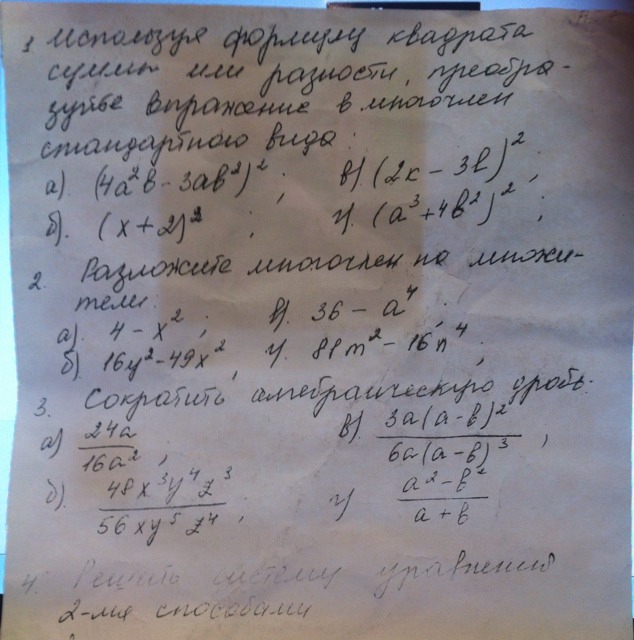 1 Используя формулу квадрата
суммы или разности, преобра-
зуйте выражение в многочлен
стандартного вида:
а). (4a²b - 3ab²)²; в). (2к - 3b)²;
б). (x + 2)²; г). (a³ + 4b²)²;
2. Разложите многочлен на множи-
тели:
а). 4 - x²; в). 36 - a⁴;
б). 16y² - 49x², г). 81m² - 16n⁴;
3. Сократить алгебраическую дробь.
а) 24a / 16a², в). 3a(a - b)² / 6a(a - b)³,
б). 48x³y⁴z³ / 56xy⁵z⁴; г) a² - b² / a + b
4. Решить систему уравнений
2-мя способами